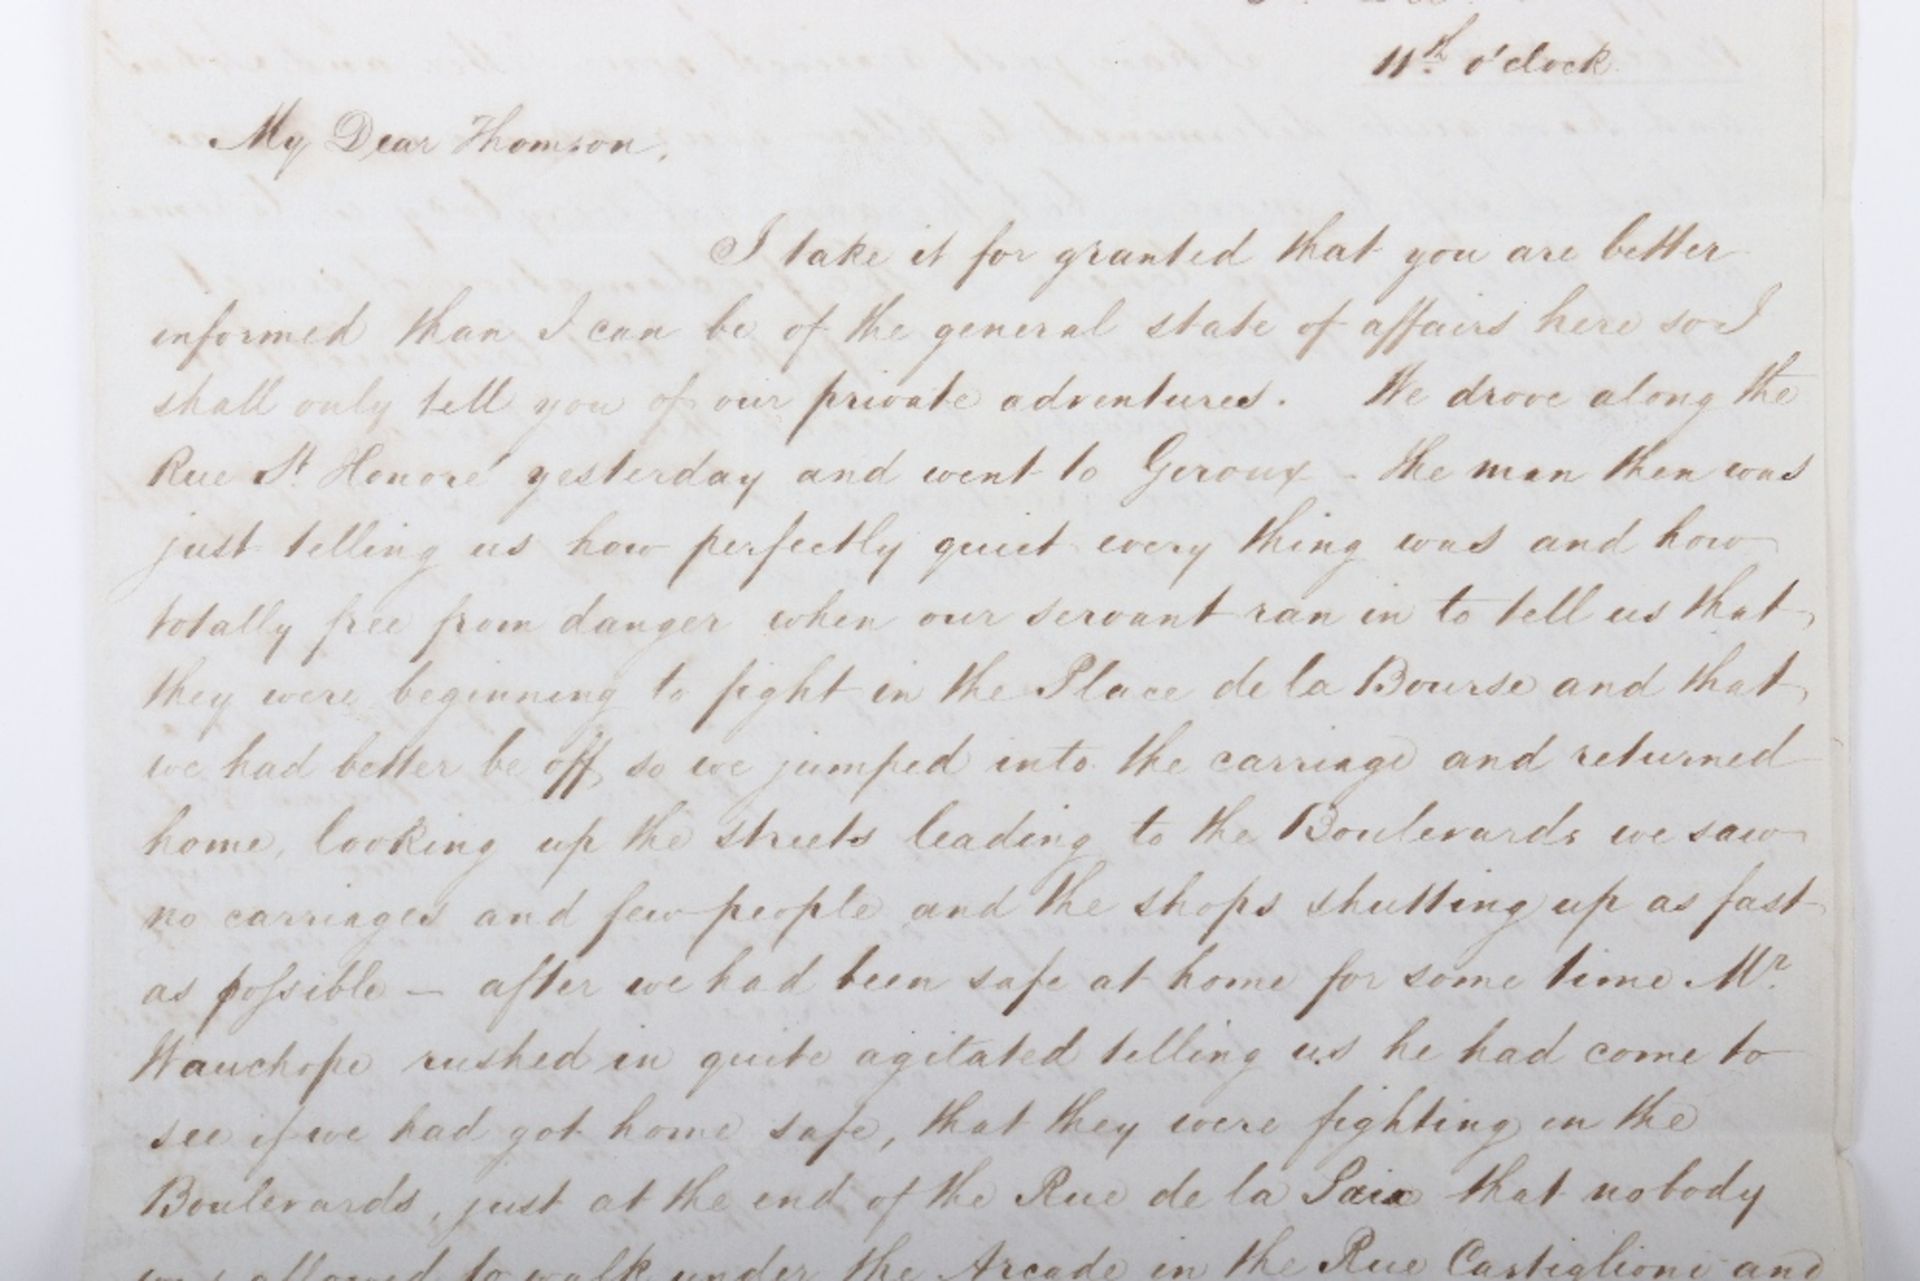 11th o'clock
My Dear Thomson,
I take it for granted that you are better
informed than I can be of the general state of affairs here so I
shall only tell you of our private adventures. We drove along the
Rue St Honoré yesterday and went to Giroux - the man then was
just telling us how perfectly quiet every thing was and how
totally free from danger when our servant ran in to tell us that
they were beginning to fight in the Place de la Bourse and that
we had better be off, so we jumped into the carriage and returned
home, looking up the streets leading to the Boulevards we saw
no carriages and few people and the shops shutting up as fast
as possible — after we had been safe at home for some time Mr.
Wauchope rushed in quite agitated telling us he had come to
see if we had got home safe, that they were fighting in the
Boulevards, just at the end of the Rue de la Paix that nobody
was allowed to walk under the Arcade in the Rue Castiglione and